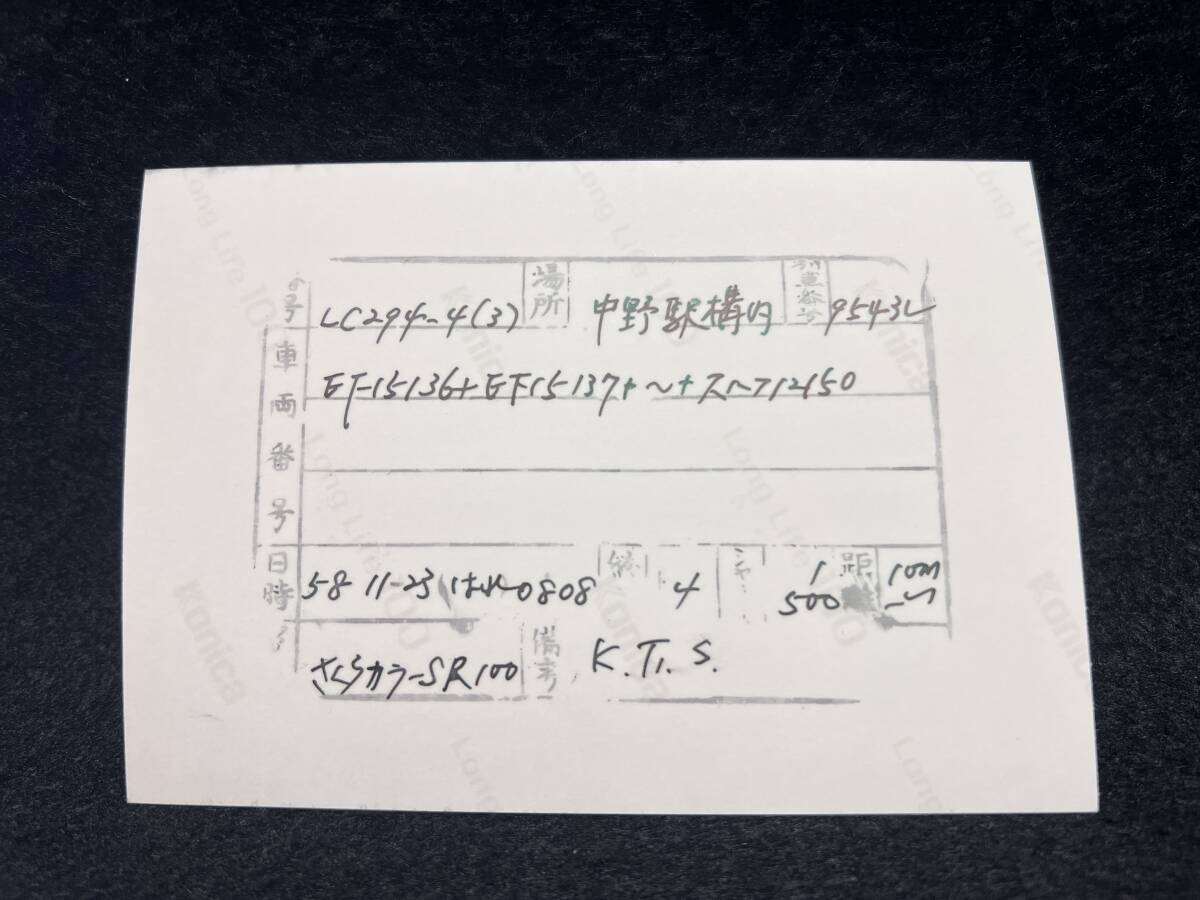 号 LC294-4(3) 場所 中野駅構内 列車番号 9543レ
車両番号 EF15136+EF15137+〜+スハフ12150
日時 58 11-23 はれ 0808 絞 4 シャ 1/500 距 10m〜∞
さくらカラーSR100 備考 K.T.S.
Long Life 100
Konica